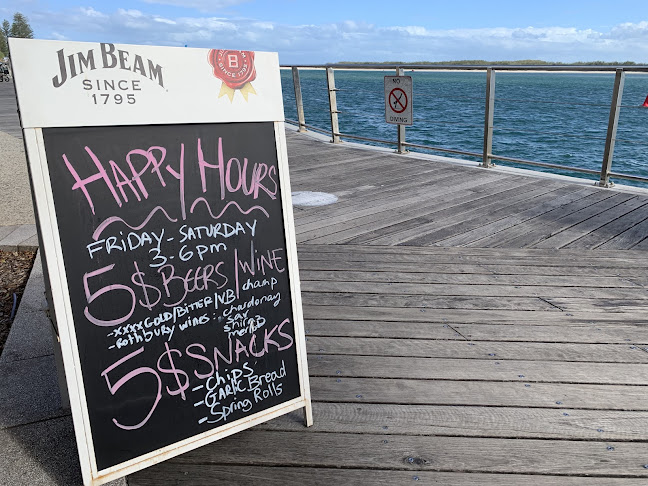 JIM BEAM
SINCE
1795
B
HAPPY HOURS
FRIDAY - SATURDAY
3-6pm
5$ BEERS/WINE
-XXXX GOLD/BITTER/VB/champ
-Rothbury wines: chardonnay
sav
shiraz
5$ SNACKS
- CHIPS
- GARLIC Bread
- Spring Rolls
NO
DIVING